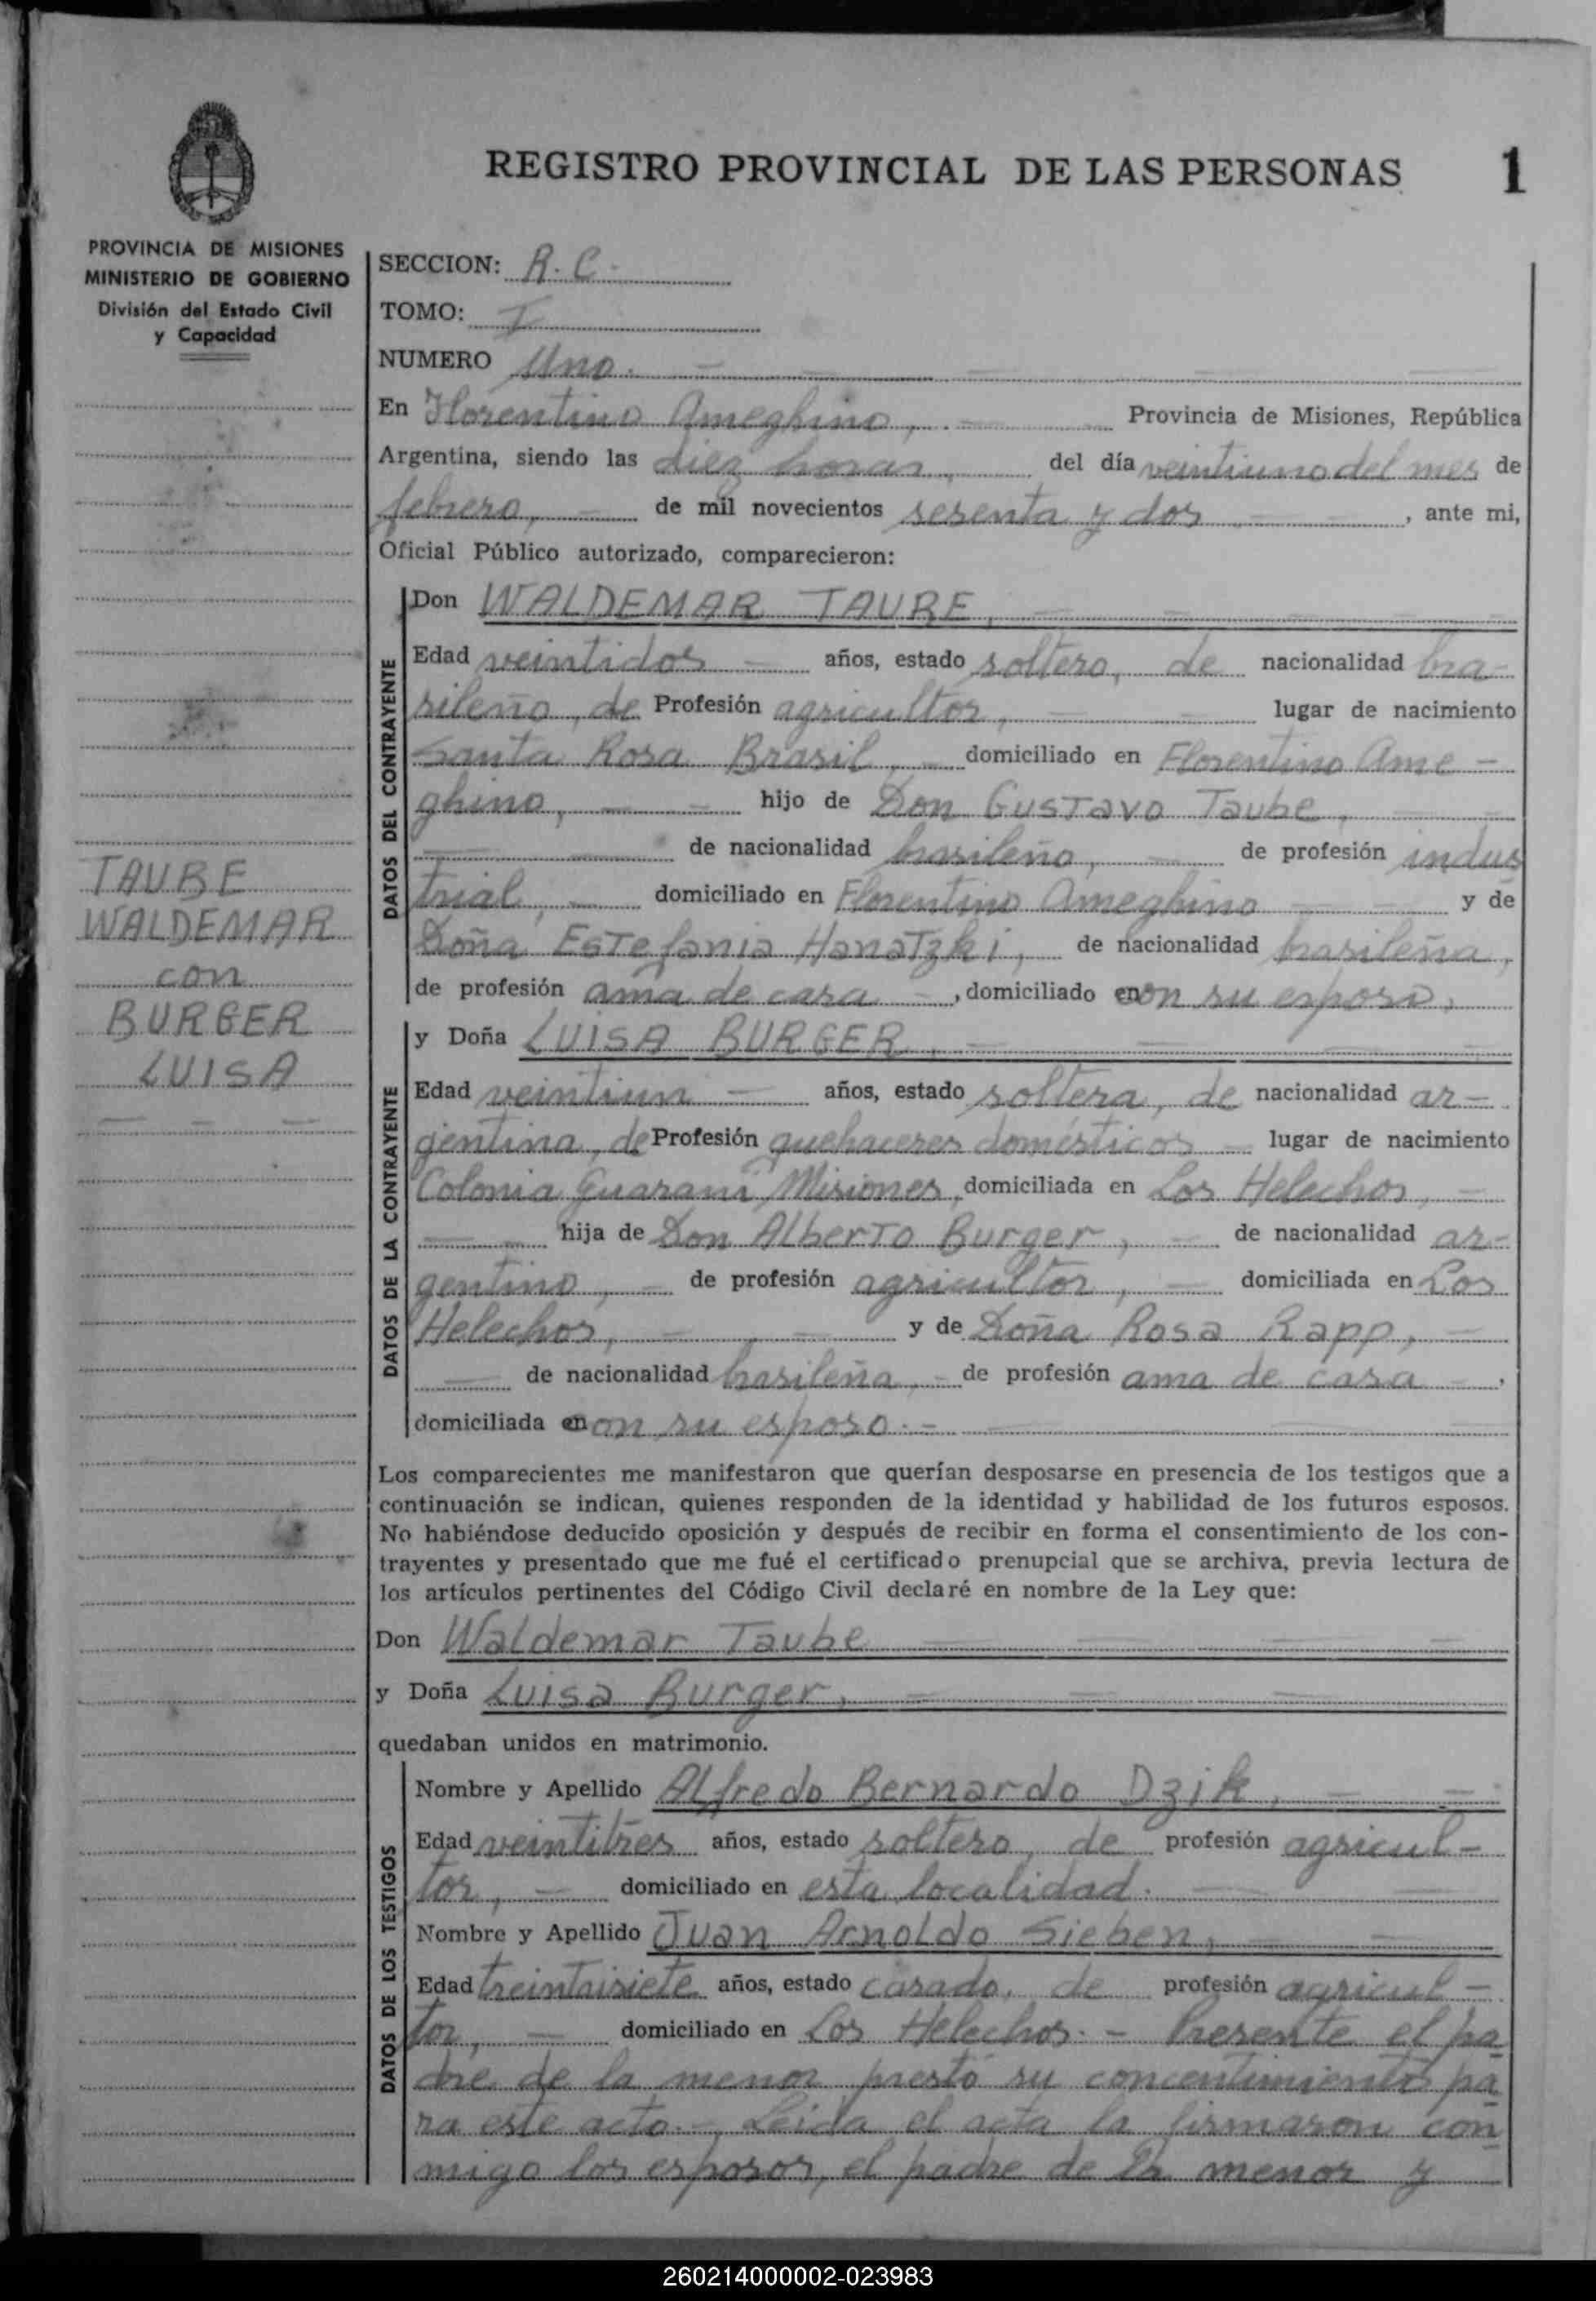 REGISTRO PROVINCIAL DE LAS PERSONAS 1
PROVINCIA DE MISIONES
MINISTERIO DE GOBIERNO
División del Estado Civil
y Capacidad
TAUBE
WALDEMAR
con
BURGER
LUISA
SECCION: R. C.
TOMO: I
NUMERO Uno.
En Florentino Ameghino, Provincia de Misiones, República
Argentina, siendo las diez horas, del día veintiuno del mes de
febrero, de mil novecientos sesenta y dos, ante mi,
Oficial Público autorizado, comparecieron:
DATOS DEL CONTRAYENTE
Don WALDEMAR TAUBE,
Edad veintidos años, estado soltero, de nacionalidad bra-
sileño, de Profesión agricultor, lugar de nacimiento
Santa Rosa Brasil, domiciliado en Florentino Ame-
ghino, hijo de Don Gustavo Taube,
de nacionalidad brasileño, de profesión indus
trial, domiciliado en Florentino Ameghino y de
Doña Estefania Hanatzki, de nacionalidad brasileña,
de profesión ama de casa, domiciliado con su esposo,
DATOS DE LA CONTRAYENTE
y Doña LUISA BURGER,
Edad veintiun años, estado soltera, de nacionalidad ar-
gentina, de Profesión quehaceres domésticos lugar de nacimiento
Colonia Guarani, Misiones, domiciliada en Los Helechos,
hija de Don Alberto Burger, de nacionalidad ar-
gentino, de profesión agricultor, domiciliada en Los
Helechos, y de Doña Rosa Rapp,
de nacionalidad brasileña, de profesión ama de casa,
domiciliada con su esposo.-
Los comparecientes me manifestaron que querían desposarse en presencia de los testigos que a
continuación se indican, quienes responden de la identidad y habilidad de los futuros esposos.
No habiéndose deducido oposición y después de recibir en forma el consentimiento de los con-
trayentes y presentado que me fué el certificado prenupcial que se archiva, previa lectura de
los artículos pertinentes del Código Civil declaré en nombre de la Ley que:
Don Waldemar Taube
y Doña Luisa Burger,
quedaban unidos en matrimonio.
DATOS DE LOS TESTIGOS
Nombre y Apellido Alfredo Bernardo Dzik,
Edad veintitres años, estado soltero, de profesión agricul-
tor, domiciliado en esta localidad.
Nombre y Apellido Juan Arnoldo Sieben,
Edad treintaisiete años, estado casado, de profesión agricul-
tor, domiciliado en Los Helechos.- Presente el pa
dre de la menor prestó su concentimiento pa
ra este acto.- Leida el acta la firmaron con
migo los esposos, el padre de la menor y
260214000002-023983